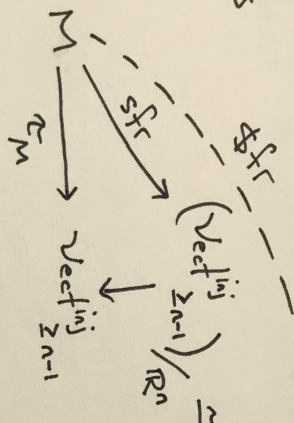 M
sfr
(Vect^inj_≥n-1)/ℝⁿ
τ_M
Vect^inj_≥n-1